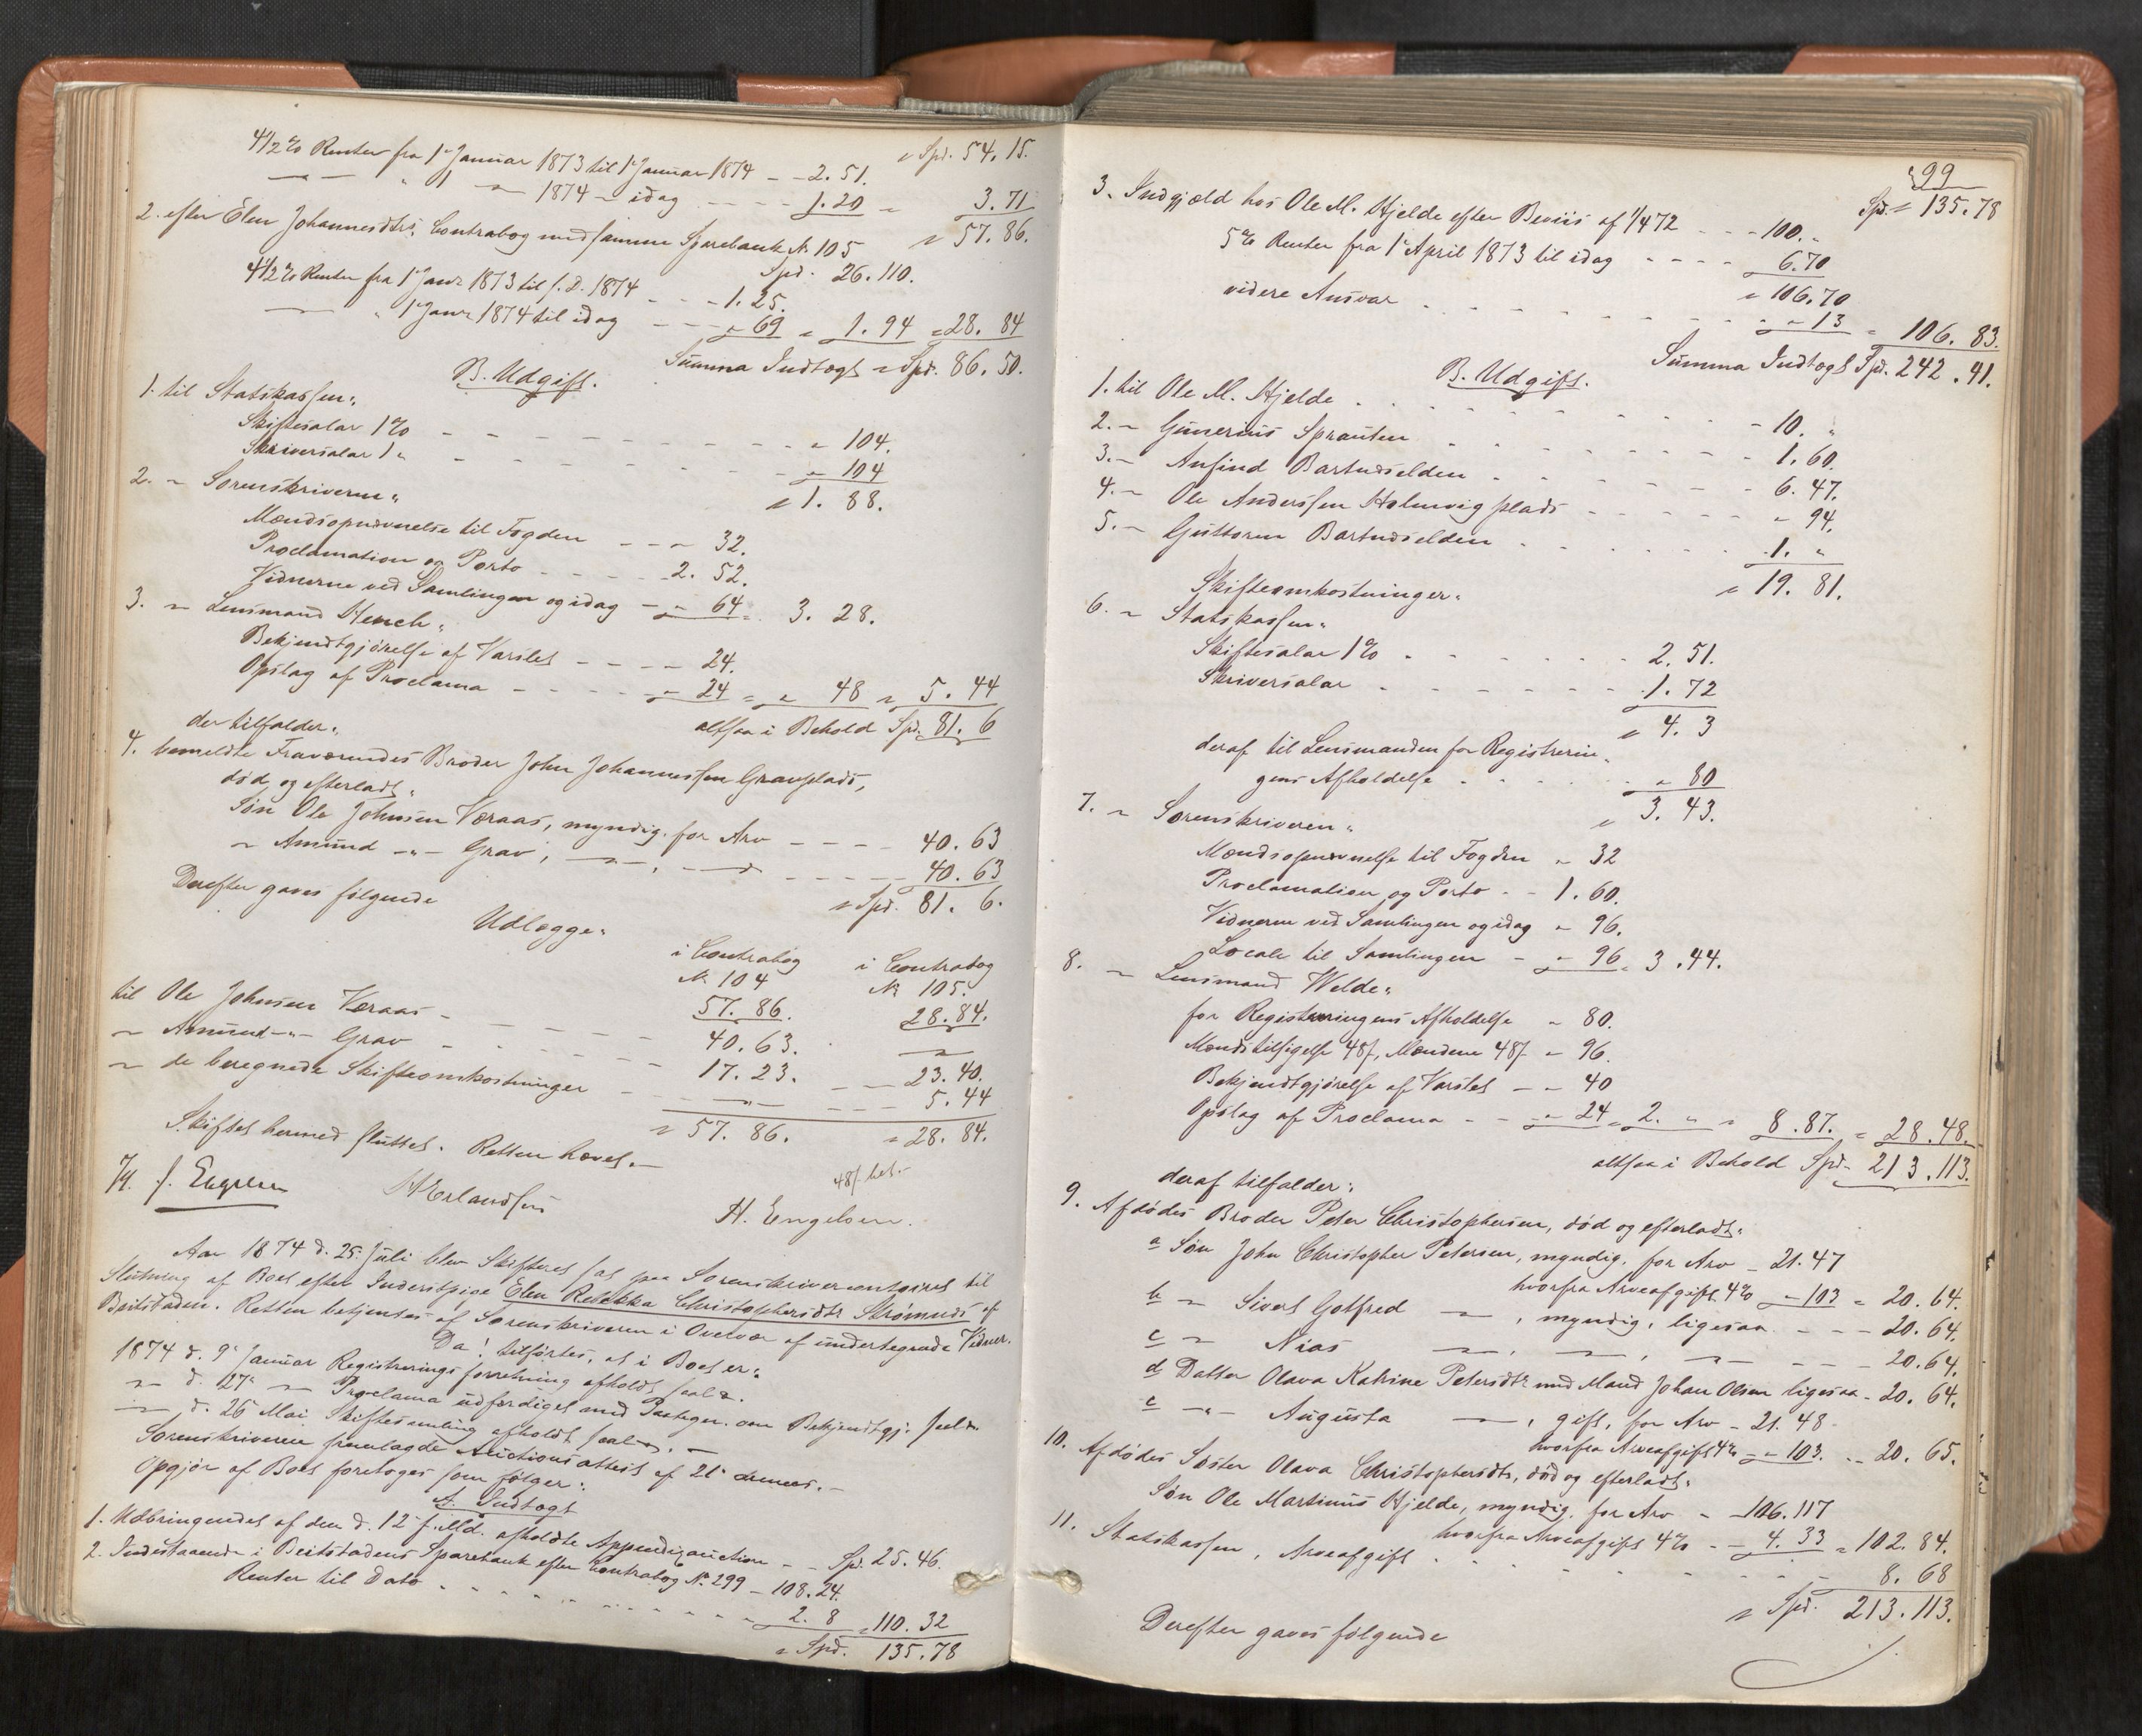 Spd. 54. 15.
4 1/2 % Renter fra 1e Januar 1873 til 1e Januar 1874 - - 2. 51.
— — " 1 — 1874 - idag - - - - 1. 20 = 3. 71
" 57. 86.
2. efter Elen Johannesdtrs. Contrabog med samme Sparebank No 105
Spd. 26. 110.
4 1/2 % Renter fra 1e Janr 1873 til s. D. 1874 - - - 1. 25.
— " 1e Janr 1874 til idag - - - " 69 = 1. 94 = 28. 84
Summa Indtægt = Spd. 86. 50.
B. Udgift.
1. til Statskassen:
Skiftesalar 1 % - - - - - - " 104.
Skriversalar 1 " - - - - - - " 104
" 1. 88.
2. " Sorenskriveren:
Mændsopnævnelse til Fogden - - - " 32.
Proclamation og Porto - - - - 2. 52.
Vidnerne ved Samlingen og idag - " 64 = 3. 28.
3. " Lensmand Hench:
Bekjendtgjørelse af Varslet - - - - 24.
Opslag af Proclama - - - - - " 24 = " 48 = 5. 44
altsaa i Behold Spd. 81. 6
der tilfalder:
4. bemeldte Fraværendes Broder John Johannessen Gravplads,
død og efterladt:
Søn Ole Johnsen Væraas, myndig, for Arv - - - - 40. 63
" Amund -"- Grav, — , — - - - - - 40. 63
" Spd. 81. 6.
Derefter gaves følgende
Udlægge:
i Contrabog i Contrabog
No 104 No 105.
57. 86. 28. 84.
til Ole Johnsen Væraas - - - - - 40. 63. —
" Amund -"- Grav - - - - - - 17. 23. - - 23. 40.
" de beregnede Skifteomkostninger - - —"— - - - 5. 44
" 57. 86. " 28. 84.
Skiftet hermed sluttet. Retten hævet.—
48 s. bet.
H Erlandsen
H. Engelsen.
Aar 1874 d. 25. Juli blev Skifteret sat paa Sorenskrivercontoiret til
Slutning af Boet efter Inderstpige Elen Rebekka Christophersdtr Strømnæs af
Beitstaden. Retten betjentes af Sorenskriveren i Overvær af undertegnede Vidner.
Da! tilførtes, at i Boet er:
1874 d. 9e Januar Registreringsforretning afholdt
— d. 27e — Proclama udfærdiget med Paategn. om Bekjendtgj.
— d. 26 Mai Skiftesamling afholdt
Sorenskriveren fremlagde Auctionsattest af 21e dennes.—
Opgjør af Boet foretoges som følger:
A. Indtægt
1. Udbringendet af den d. 12e f. Md. afholdte Appendixauction - - Spd. 25. 46.
2. Indestaaende i Beitstadens Sparebank efter Contrabog No. 299 - 108. 24.
Renter til Dato - - - - - - - - - - 2. 8 = 110. 32
" Spd. 135. 78
99
Spd. = 135. 78
3. Indgjæld hos Ole M. Hjelde efter Beviis af 1/4 72 - - - 100. "
5 % Renter fra 1e April 1873 til idag - - - - 6. 70
" 106. 70
videre Ansvar - - - - - - - - " " 13 = 106. 83.
Summa Indtægt Spd. 242. 41.
B. Udgift.
1. til Ole M. Hjelde - - - - - - - - - 10. "
2. " Gunerius Sprauten - - - - - - - 1. 60.
3. " Anfind Bartnæselden - - - - - - 6. 47.
4. " Ole Anderssen Holmvig plads - - - - - " 94.
5. " Guttorm Bartnæselden - - - - - 1. "
" 19. 81.
Skifteomkostninger:
6. " Statskassen:
Skiftesalar 1 % - - - - - - 2. 51.
Skriversalar - - - - - - - 1. 72
" 4. 3
deraf til Lensmanden for Registrerin-
gens Afholdelse - - - - - " 80
" 3. 43.
7. " Sorenskriveren:
Mændsopnævnelse til Fogden " 32
Proclamation og Porto - - 1. 60.
Vidnerne ved Samlingen og idag " 96.
Locale til Samlingen - " 96 = 3. 44.
8. " Lensmand Welde:
for Registreringens Afholdelse " 80.
Mændstilsigelse 48 s, Mændene 48 s " 96.
Bekjendtgjørelse af Varslet - - 40
Opslag af Proclama - - " 24 = 2. " = 8. 87. = 28. 48.
altsaa i Behold Spd. 213. 113.
deraf tilfalder:
9. Afdødes Broder Peter Christophersen, død og efterladt:
a Søn John Christopher Petersen, myndig, for Arv - 21. 47
hvorfra Arveafgift 4 % " 103 = 20. 64.
b " Sivert Gotfred — , myndig, ligesaa - - - 20. 64.
c " Nias — , — , — - - - - 20. 64.
d Datter Olava Katrine Petersdtr med Mand Johan Olsen ligesaa - 20. 64.
e -"- Augusta — , gift, for Arv - 21. 48
hvorfra Arveafgift 4 % - " 103. - - 20. 65.
10. Afdødes Søster Olava Christophersdtr, død og efterladt:
Søn Ole Martinus Hjelde, myndig, for Arv - 106. 117
hvorfra Arveafgift 4 % - - 4. 33 = 102. 84.
11. Statskassen, Arveafgift - - - - - - - - 8. 68
" Spd. 213. 113.
Derefter gaves følgende